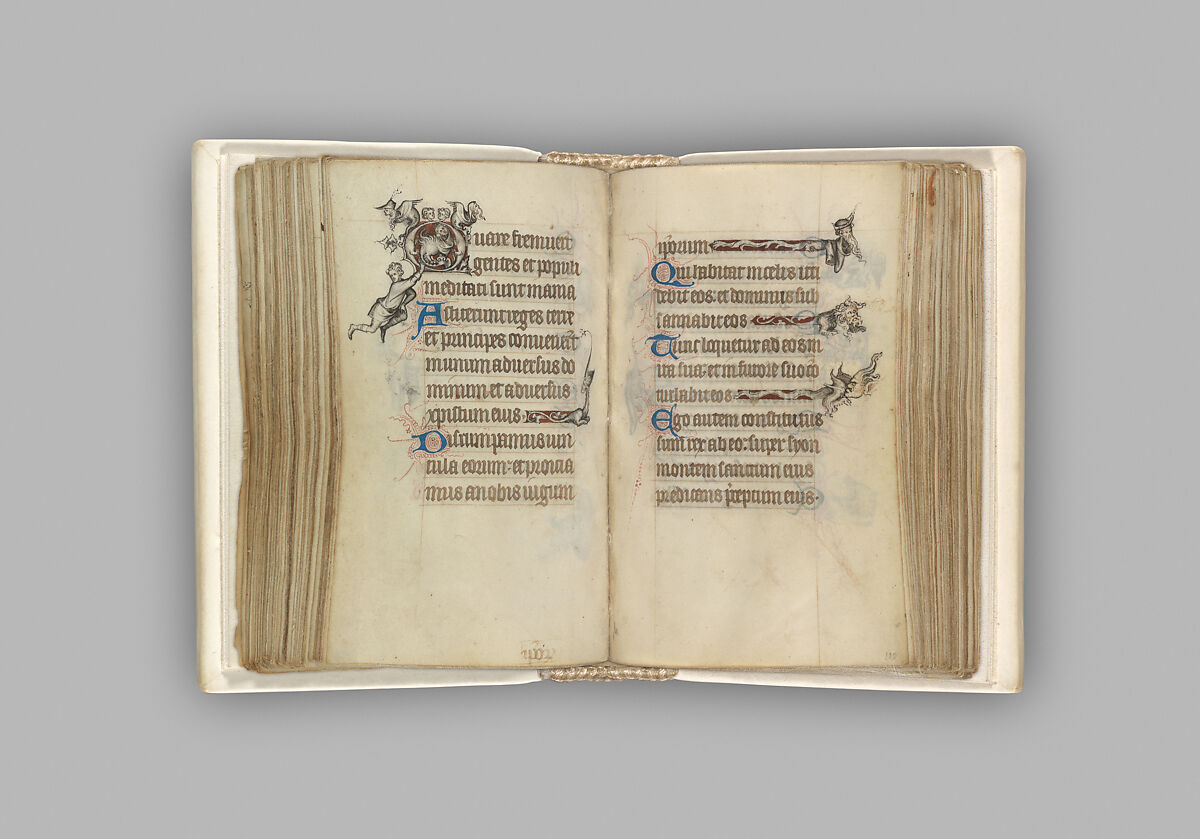 Quare fremuer̄t
gentes et populi
meditati sunt inania
Astiterunt reges terre
et principes convener̄t
in unum adversus do
minum et adversus
xpistum eius.
Disrumpamus vin
cula eorum: et proicia
mus a nobis iugum
ip̄orum
Qui habitat in celis irri
debit eos: et dominus sub
sannabit eos
Tunc loquetur ad eos in
ira sua: et in furore suo cō
turbabit eos
Ego autem constitutus
sum rex ab eo: super syon
montem sanctum eius
predicans p̄ceptum eius.